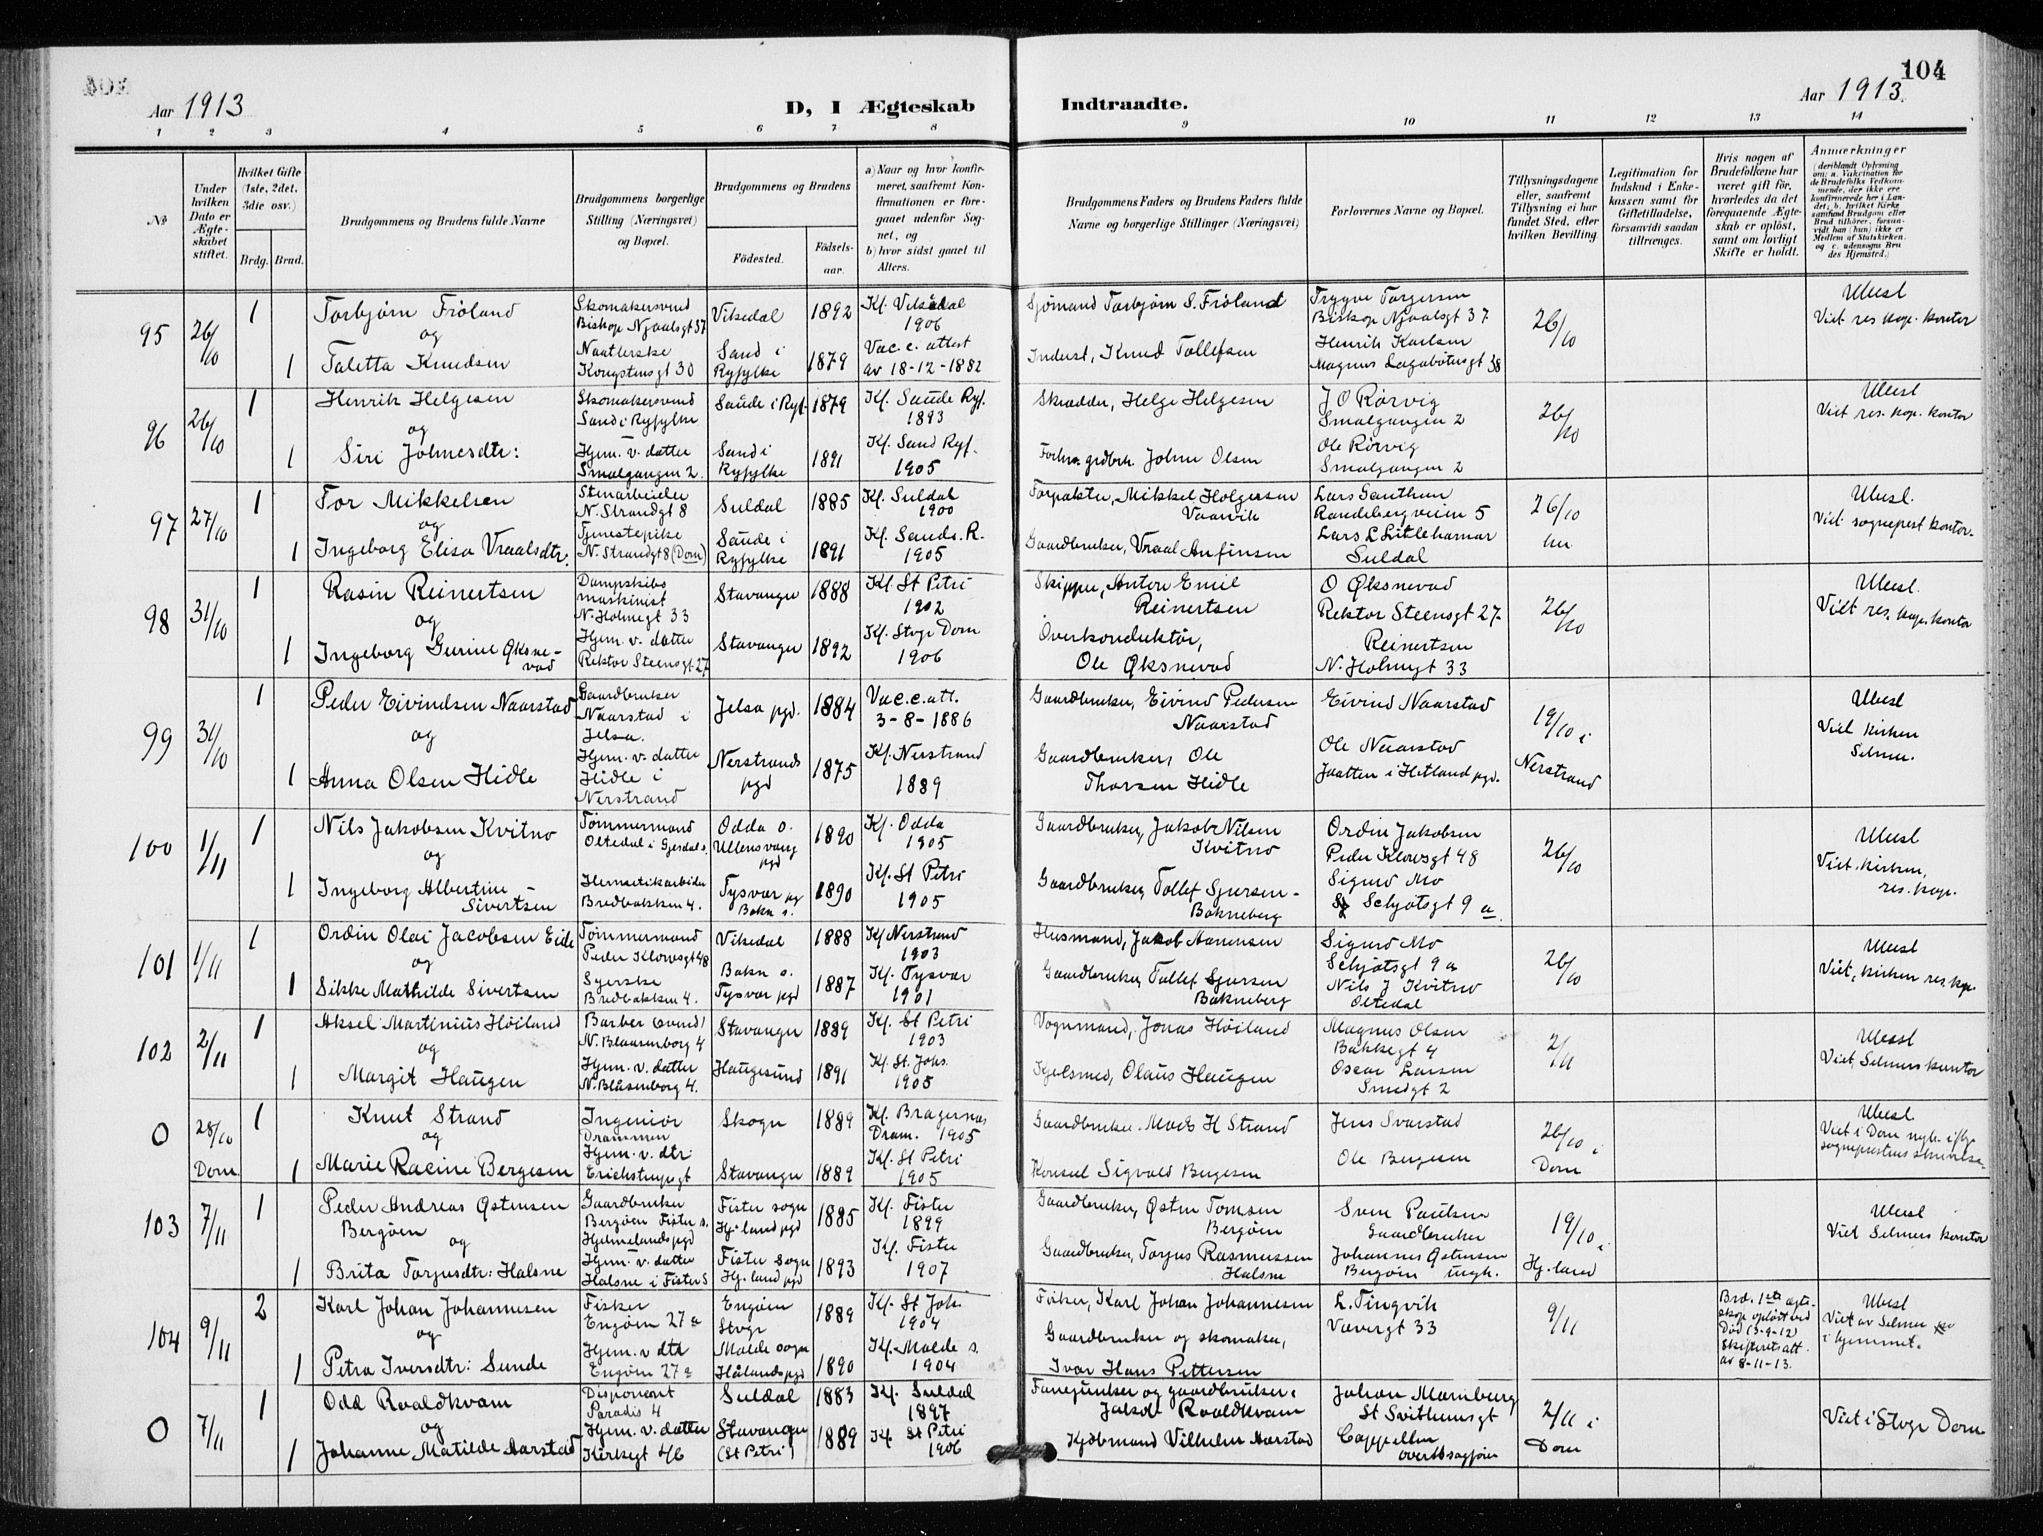 104
Aar 1913
D, I Ægteskab Indtraadte.
Aar 1913.
1 2 3 4 5 6 7 8 9 10 11 12 13 14
No
Under hvilken Dato er Ægteskabet stiftet.
Hvilket Gifte (1ste, 2det, 3die osv.)
Brdg. Brud.
Brudgommens og Brudens fulde Navne
Brudgommens borgerlige Stilling (Næringsvei) og Bopæl.
Brudgommens og Brudens
Fødested.
Fødselsaar.
a) Naar og hvor konfirmeret, saafremt Konfirmationen er foregaaet udenfor Sognet, og
b) hvor sidst gaaet til Alters.
Brudgommens Faders og Brudens Faders fulde Navne og borgerlige Stillinger (Næringsvei)
Forlovernes Navne og Bopæl.
Tillysningsdagene eller, saafremt Tillysning ei har fundet Sted, efter hvilken Bevilling
Legitimation for Indskud i Enkekassen samt for Giftetilladelse, forsaavidt saadan tiltrænges.
Hvis nogen af Brudefolkene har været gift før, hvorledes da det foregaaende Ægteskab er opløst, samt om lovligt Skifte er holdt.
Anmærkninger (deriblandt Oplysning om: a. Vakcination for de Brudefolks Vedkommende, der ikke ere konfirmerede her i Landet, b. hvilket Kirkesamfund Brudgom eller Brud tilhører, forsaavidt han (hun) ikke er Medlem af Statskirken, og c. udensogns Brudes Hjemsted.)
95 26/10 1 Torbjørn Frøland
og
1 Taletta Knudsen
Skomakersvend
Biskop Njaalsgt 37
Kongstensgt 30
Vikedal 1892
Sand i Ryfylke 1879
Kf. Vikedal 1906
Vac. c. attest av 18-12-1882
Sjømand Torbjørn S. Frøland
Inderst, Knud Tollefsen
Trygve Torgersen
Biskop Njaalsgt 37
Henrik Karlsen
Magnus Lagabøtersgt 38
26/10
Ubesl
Viet res. kap. kontor
96 26/10 1 Henrik Helgesen
og
1 Siri Johnesdtr:
Skomakersvend
Sand i Ryfylke
Hjem. v. datter
Smalgangen 2.
Saude i Ryf. 1879
Sand i Ryfylke 1891
Kf. Saude Ryf. 1893
Kf. Sand Ryf. 1905
Skrædder, Helge Helgesen
Forhv. grdbrk. Johne Olsen
J O Rørvig
Smalgangen 2
Ole Rørvig
Smalgangen 2
26/10
Ubesl
Viet res. kap. kontor
97 27/10 1 Tor Mikkelsen
og
1 Ingeborg Elisa Vraalsdtr.
Stenarbeider
N. Strandgt 8
Tjenestepike
N. Strandgt 8 (Dom)
Suldal 1885
Saude i Ryfylke 1891
Kf. Suldal 1900
Kf. Sauds. R. 1905
Forpakter, Mikkel Holgersen
Vaarvik
Gaardbruker, Vraal Anfinsen
Lars Santhum
Randebergveien 5
Lars L Litlehamar
Suldal
26/10
Ubesl.
Viet sogneprest kontor.
98 31/10 1 Rasin Reinertsen
og
1 Ingeborg Gurine Øksnevad
Dampskibsmaskinist
N. Holmegt 33
Hjem. v. datter
Rektor Steensgt 27
Stavanger 1888
Stavanger 1892
Kf. St Petri 1902
Kf. Stvgr Dom 1906
Skipper, Anton Emil
Reinertsen
Overkonduktør,
Ole Øksnevad
O Øksnevad
Rektor Steensgt 27
Reinertsen
N. Holmegt 33
26/10
Ubesl.
Viet res. kap. kontor
99 31/10 1 Peder Eivindsen Naarstad
og
1 Anna Olsen Hidle
Gaardbruker
Naarstad i Jelsa.
Hjem. v. datter
Hidle i Nerstrand
Jelsa pgd. 1884
Nerstrands pgd 1875
Vac. c. att. 3-8-1886
Kf. Nerstrand 1889
Gaardbruker, Eivind Pedersen
Naarstad
Gaardbruker, Ole
Thorsen Hidle
Eivind Naarstad
Ole Naarstad
Jaatten i Hetland pgd.
19/10 i Nerstrand
Ubesl
Viet kirken
Selmer.
100 1/11 1 Nils Jakobsen Kvitno
og
1 Ingeborg Albertine Sivertsen
Tømmermand
Oltedal i Gjesdal s.
Hermetikarbeider
Bredbakken 4.
Odda s. Ullensvang pgd 1890
Tysvær pg Bokn s. 1890
Kf. Odda 1905
Kf. St Petri 1905
Gaardbruker, Jakob Nilsen
Kvitno
Gaardbruker, Tollef Sjursen
Bokneberg
Ordin Jakobsen
Peder Klowsgt 48
Sigurd Mo
Schjøtsgt 9 a.
26/10
Ubesl
Viet. kirken,
res. kap.
101 1/11 1 Ordin Olai Jacobsen Eide
og
1 Sikke Mathilde Sivertsen
Tømmermand
Peder Klowsgt 48
Syerske
Bredbakken 4.
Vikedal 1888
Bokn s. Tysvær pgd 1887
Kf Nerstrand 1903
Kf. Tysvær 1901
Husmand, Jakob Aanensen
Gaardbruker, Tollef Sjursen
Bokneberg
Sigurd Mo
Schjøtsgt 9 a
Nils J Kvitno
Oltedal
26/10
Ubesl
Viet, kirken res kap.
102 2/11 1 Aksel Martinius Høiland
og
1 Margit Haugen
Barber (svend)
N. Blaasenborg 4
Hjem. v. datter
N. Blåsenborg 4.
Stavanger 1889
Haugesund 1891
Kf. St Petri 1903
Kf. St. Johs. 1905
Vognmand, Jonas Høiland
Kjelsmed, Olaus Haugen
Magnus Olsen
Bakkegt 4
Oscar Larsen
Smedgt 2
2/11
Ubesl
Viet, Selmers kontor
0 28/10 Dom. 1 Knut Strand
og
1 Marie Racine Bergesen
Ingeniør
Drammen
Hjem. v. dtr
Skogn 1889
Stavanger 1889
Kf. Bragernæs Dram. 1905
Kf. St Petri 1905
Gaardbruker. Mads H Strand
Konsul Sigvald Bergesen
Jens Svarstad
Ole Bergesen
26/10 i Dom
Ubesl
103 7/11 1 Peder Andreas Østensen
Bergøen
og
1 Brita Torjusdtr: Halsne
Gaardbruker
Bergøen Fister s.
Hjelmelands pgd
Hjem. v. datter
Halsne i Fister S
Fister sogn Hj.land pgd 1885
Fister sogn Hj. land pgd 1893
Kf. Fister 1899
Kf. Fister 1907
Gaardbruker, Østen Tomsen
Bergøen
Gaardbruker, Torjus Rasmussen
Halsne
Sven Paulsen
Gaardbruker
Johannes Østensen
Bergøen ungk.
19/10 i Hj. land
Ubesl
Viet Selmers kontor
104 9/11 2 Karl Johan Johannesen
og
1 Petra Iversdtr: Sunde
Fisker
Engøen 27 a
Hjem. v dtr
Engøen 27 a
Engøen Stvgr 1889
Malde sogn Hålands pgd 1890
Kf. St Joh. 1904
Kf. Malde s. 1904
Fisker, Karl Johan Johannesen
Gaardbruker og skomaker,
Ivar Hans Pettersen
L. Tingvik
Vævergt 33
9/11
Brd. 1ste egteskap opløst ved Død (3-9-12) Skifteretsatt. av 8-11-13.
Ubesl
Viet av Selmer
i hjemmet.
0 7/11 1 Odd Roaldkvam
og
1 Johanne Matilde Aarstad
Disponent
Paradis 4
Hjem. v. datter
Suldal 1883
Stavanger (St Petri) 1889
Kf. Suldal 1897
Kf St Petri 1906
Fanejunker og gaardbruker
Jakob Roaldkvam
Kjøbmand Vilhelm Aarstad
Johan Marnburg
St Svithunsgt
Cappelen
overretssagfører
2/11 i Dom
Viet i Stvgr Dom.